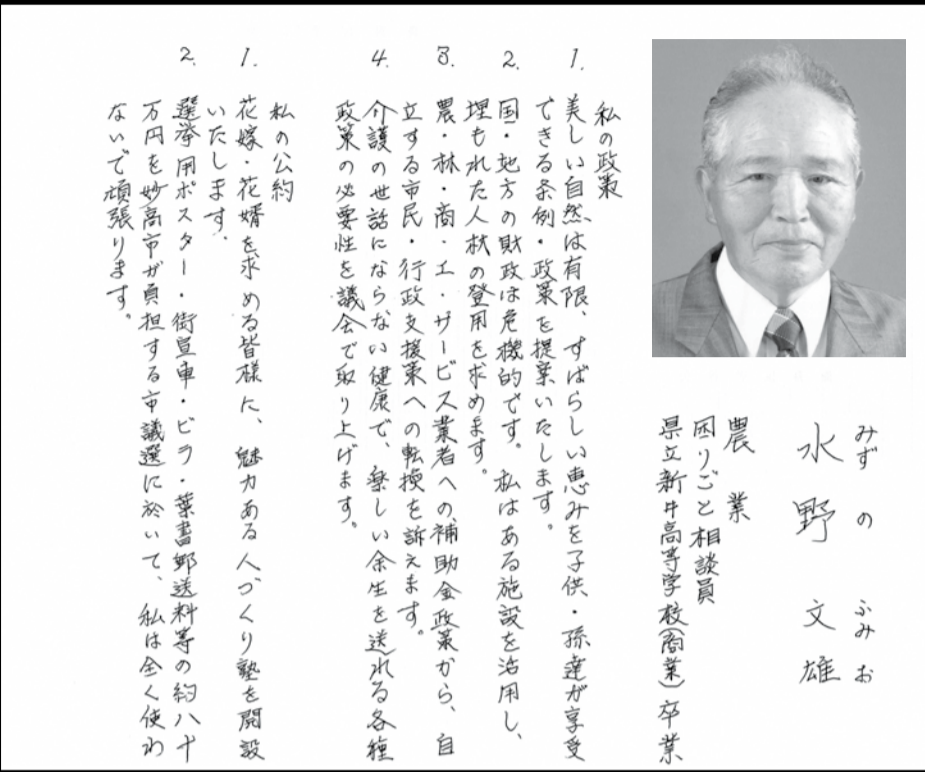 みず の ふみ お
水野文雄
農業
困りごと相談員
県立新井高等学校(商業)卒業
私の政策
1. 美しい自然は有限、すばらしい恵みを子供・孫達が享受
できる条例・政策を提案いたします。
2. 国・地方の財政は危機的です。私はある施設を活用し、
埋もれた人材の登用を求めます。
3. 農・林・商・工・サービス業者への補助金政策から、自
立する市民・行政支援策への転換を訴えます。
4. 介護の世話にならない健康で、楽しい余生を送れる各種
政策の必要性を議会で取り上げます。
私の公約
1. 花嫁・花婿を求める皆様に、魅力ある人づくり塾を開設
いたします.
2. 選挙用ポスター・街宣車・ビラ・葉書郵送料等の約八十
万円を妙高市が負担する市議選に於いて、私は全く使わ
ないで頑張ります。